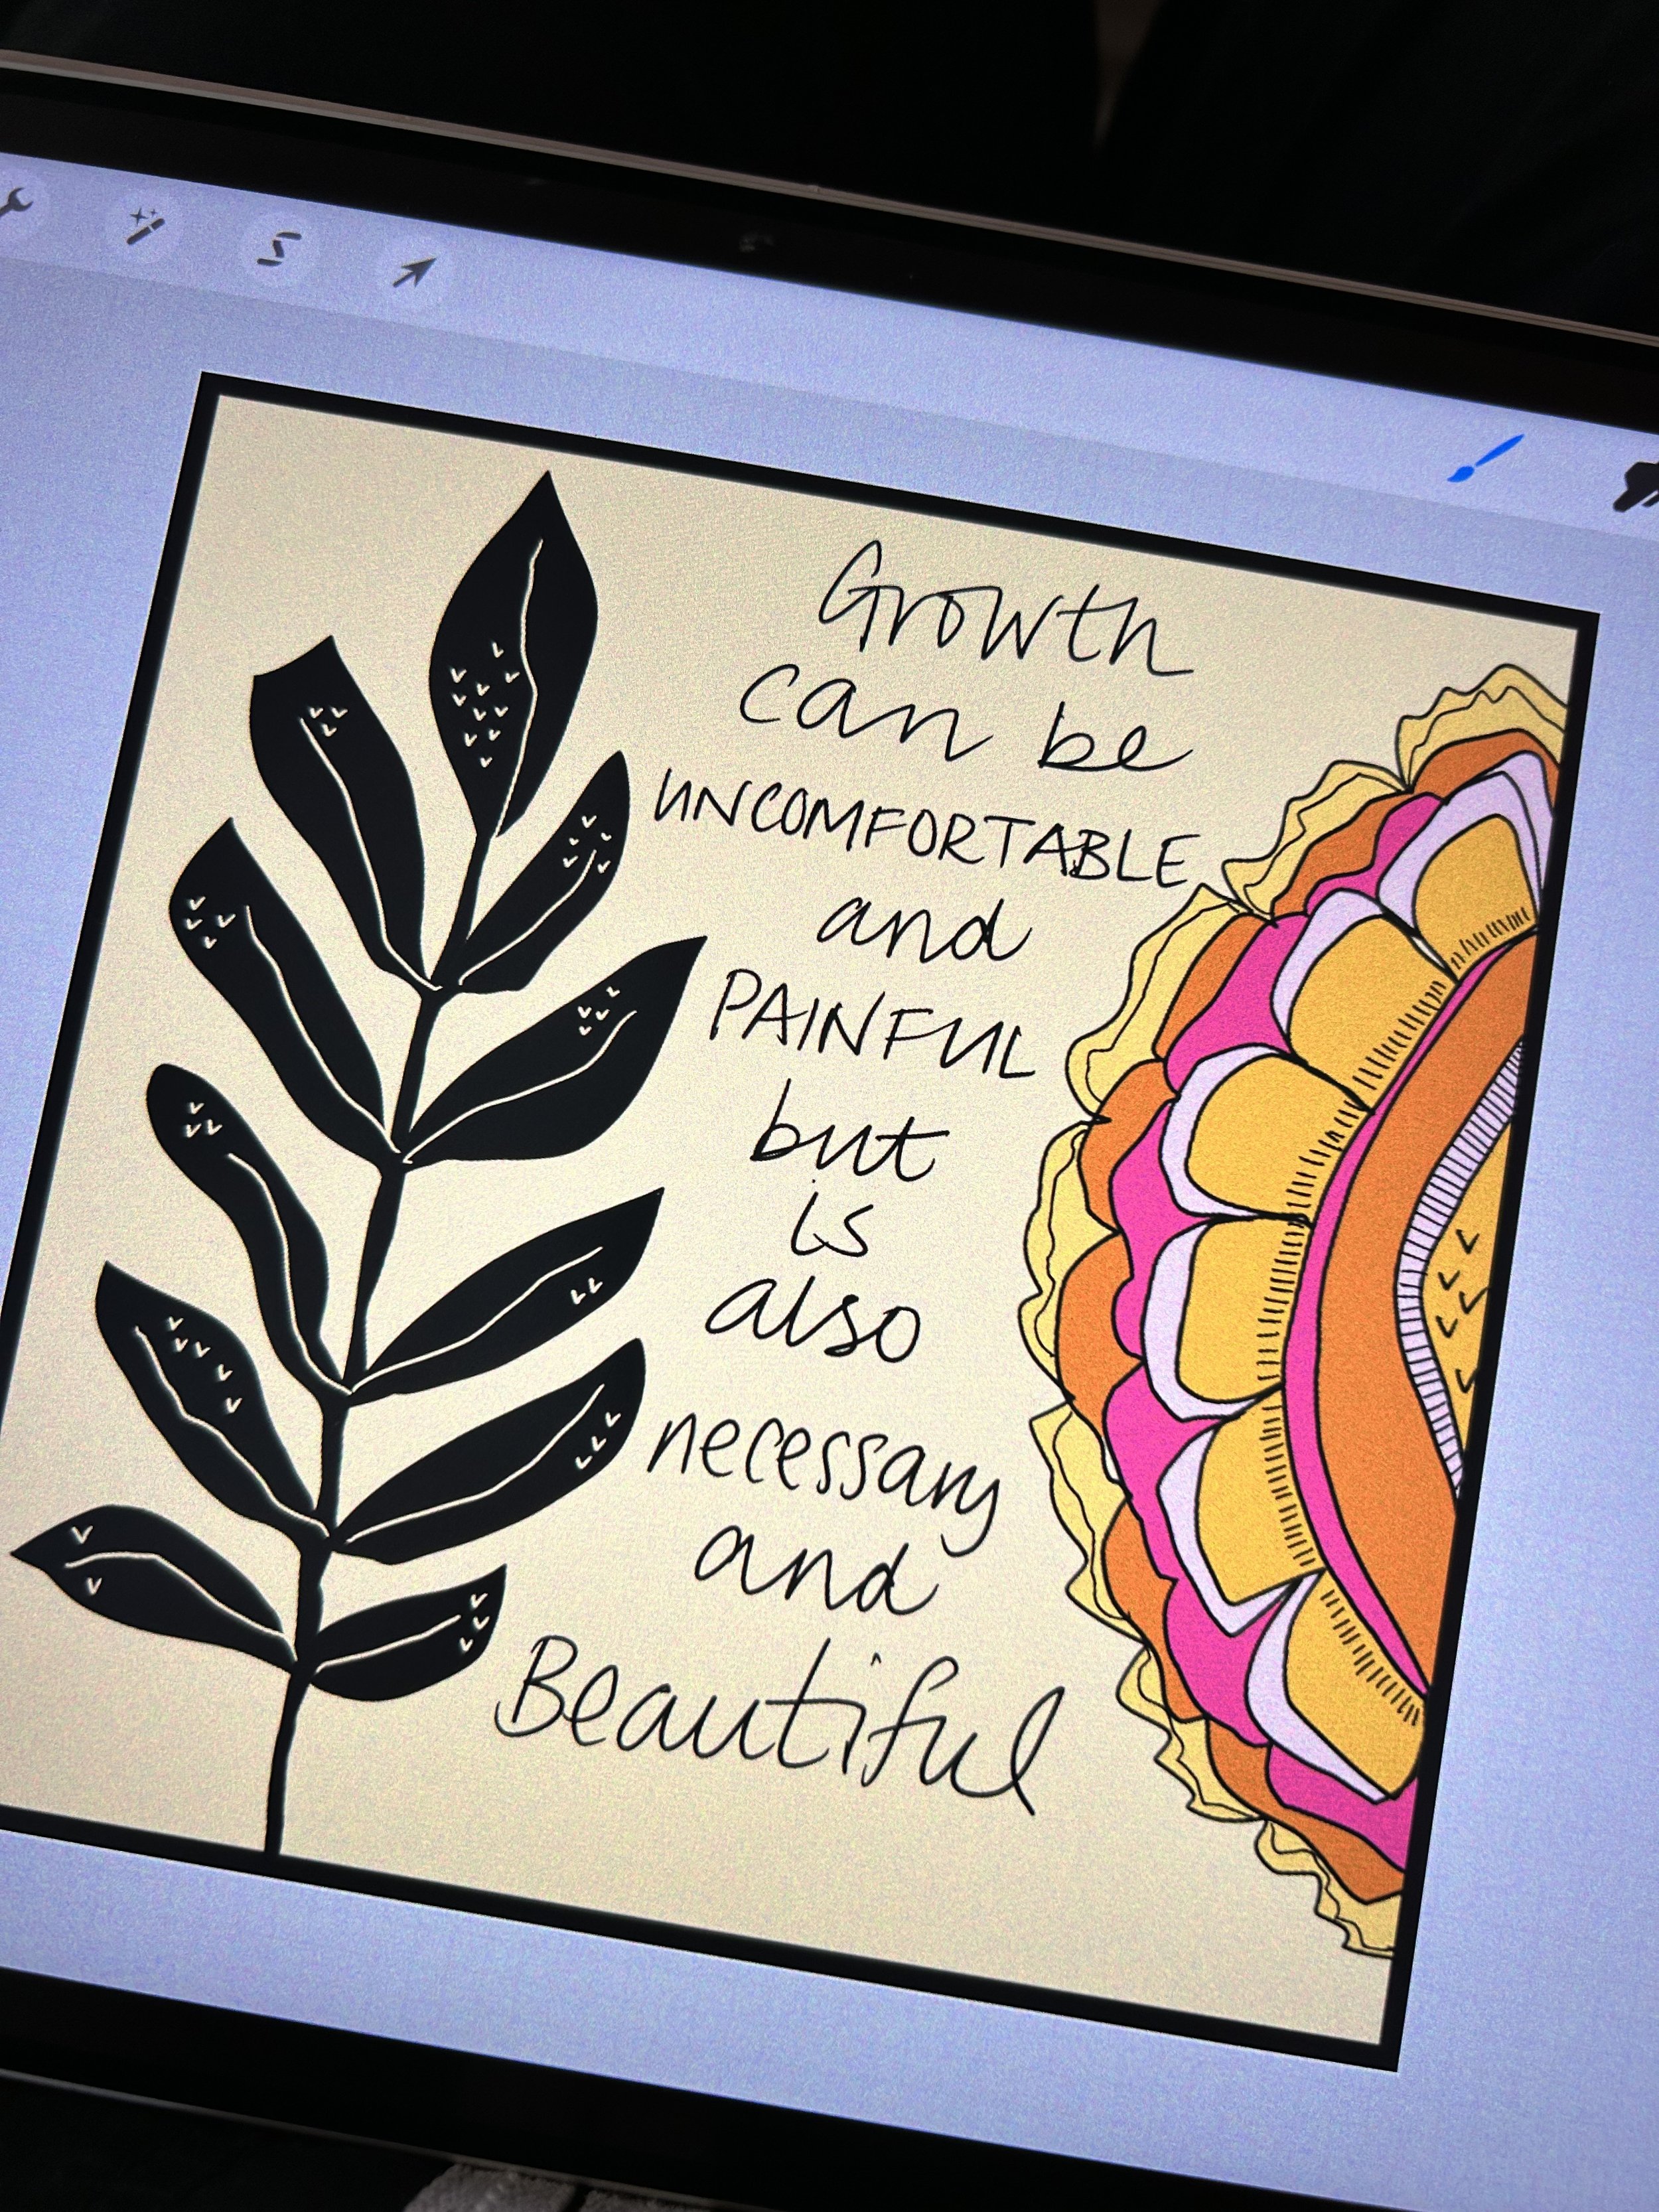 Growth
can be
UNCOMFORTABLE
and
PAINFUL
but
is
also
necessary
and
Beautiful